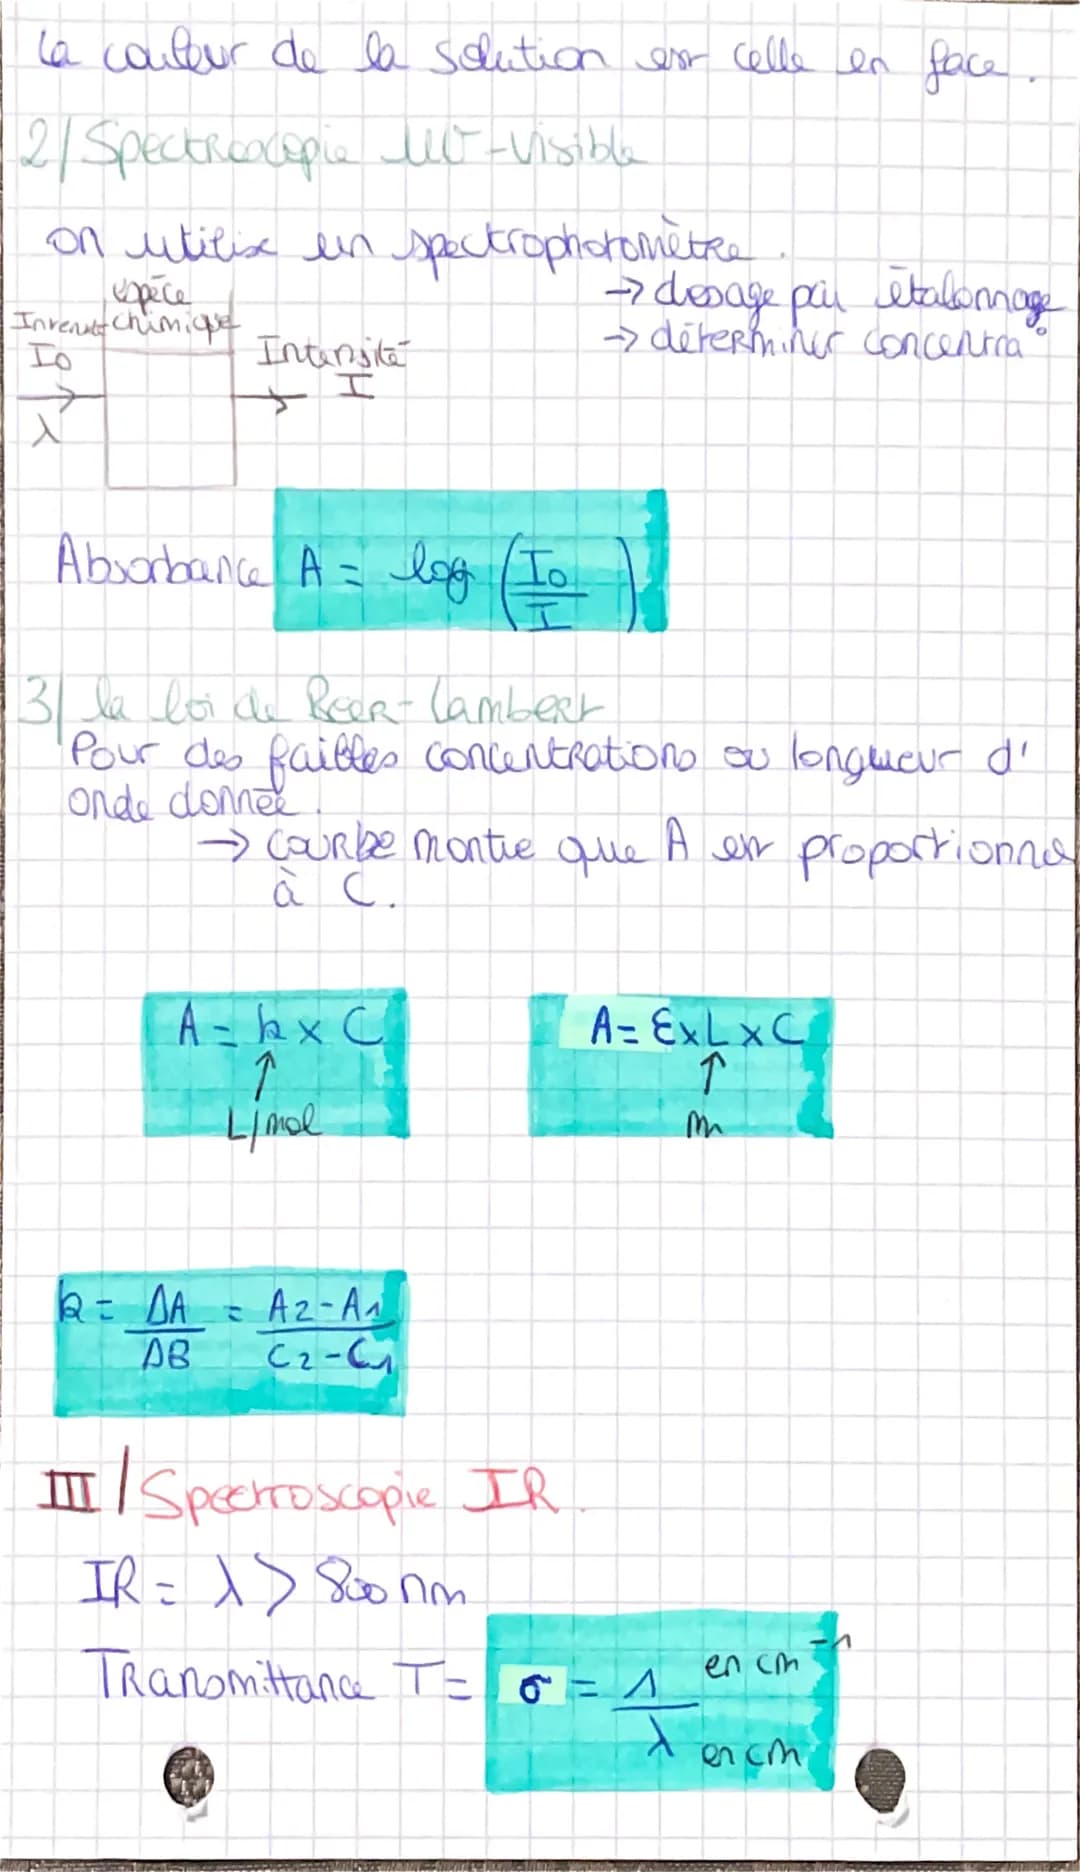 la couleur de la solution est celle en face.
2/ Spectroscopie UV-visible
on utilise un spectrophotomètre.
→ dosage par étalonnage
→ déterminer concentra°
espèce
chimique
Intensité
I0
λ
Intensité
I
Absorbance A = log (I0/I)
3/ la loi de Beer-Lambert
Pour des faibles concentrations ou longueur d'
onde donnée.
→ courbe montre que A est proportionnel
à C.
A = k x C
↑
L/mol
A = Ɛ x L x C
↑
m
k = ΔA/ΔB = A2-A1/C2-C1
III/ Spectroscopie IR.
IR = λ > 800 nm
Transmittance T = σ = 1/λ
en cm⁻¹
en cm